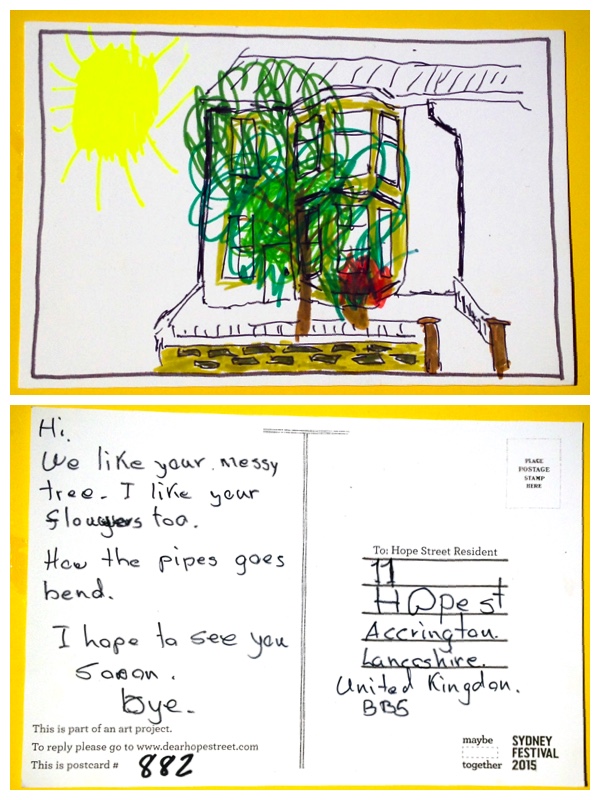 Hi.
We like your messy
tree. I like your
flowers too.
How the pipes goes
bend.
I hope to see you
sooon.
bye.
This is part of an art project.
To reply please go to www.dearhopestreet.com
This is postcard # 882
PLACE
POSTAGE
STAMP
HERE
To: Hope Street Resident
11
HOpe st
Accrington.
Lancashire.
United Kingdon.
BB5
maybe
together
SYDNEY
FESTIVAL
2015